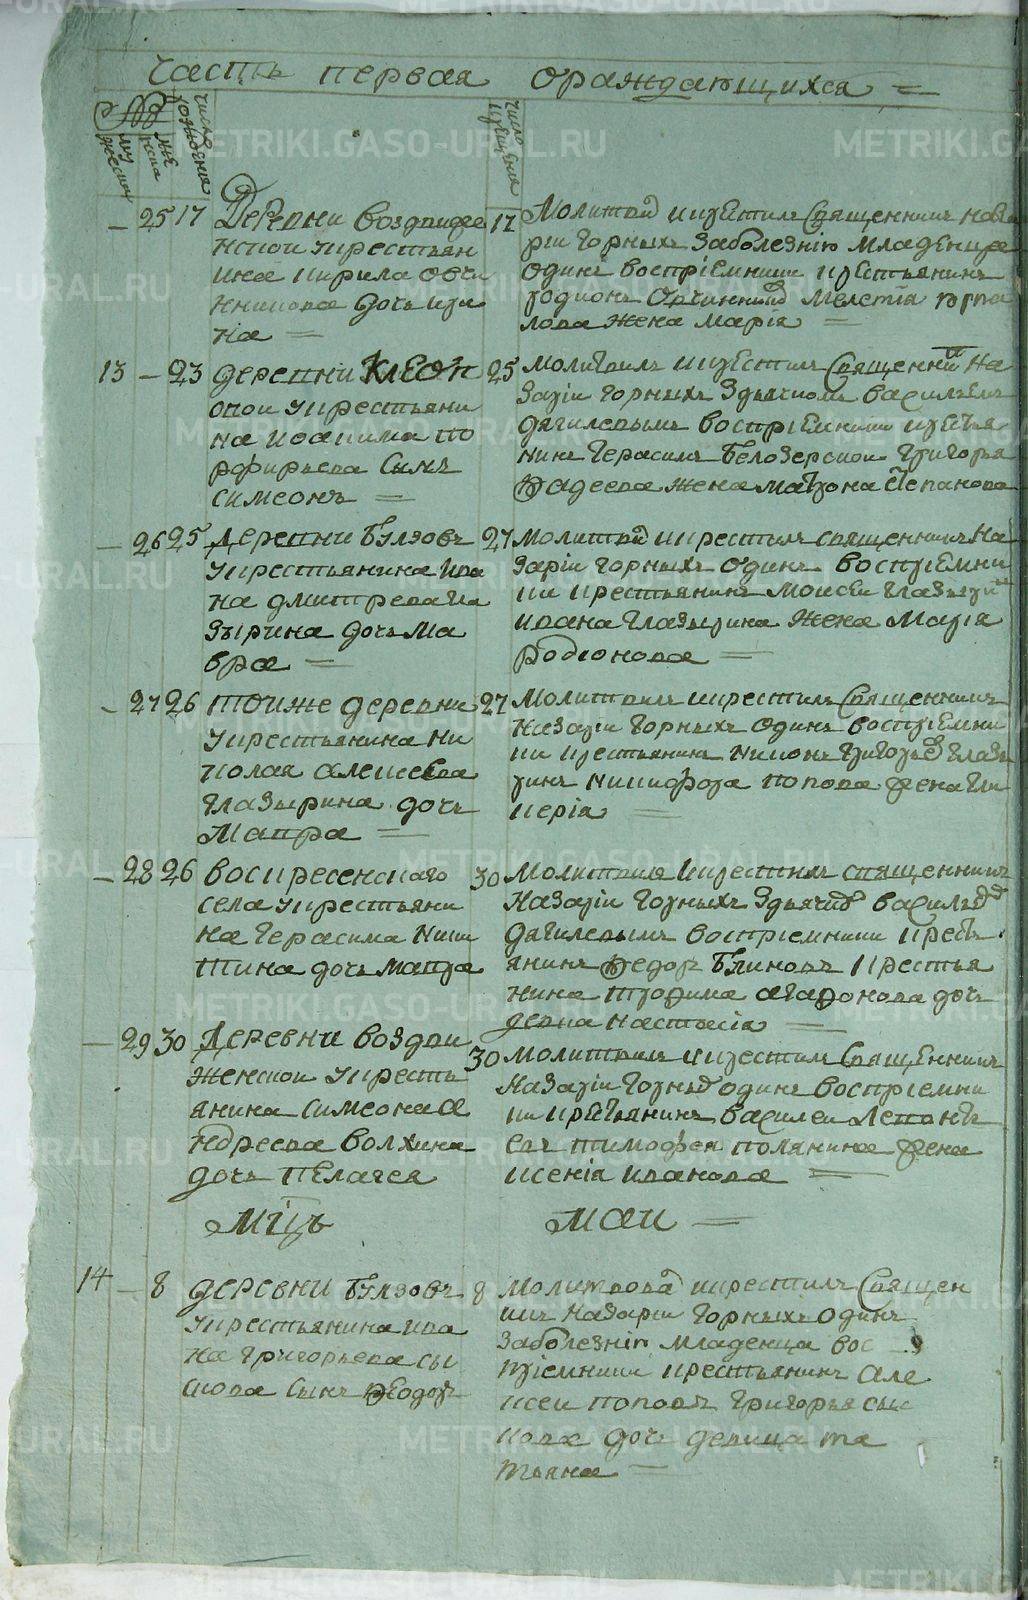 часть первая ораждающихся =
число рождения
число крещения
му
жеска
же
нска
– 25 17 Деревни воздвиже
нской укрестьян
ина кирила овчи
нникова дочь ири
на =
17 Молитвов и крестилъ священникъ наза
рiи горныхъ заболезнiю младенца
одинъ воспрiемники крестьянинъ
родионъ овчинников мелетiя
лова жена марiя =
13 – 23 деревни клеоп
овои укрестьяни
на иоакима по
рфирьева сынъ
симеонъ =
25 молитвилъ и крестилъ священник на
зарiи горныхъ здьячкомъ василiемъ
дягилевымъ воспрiемники крестья
нинъ герасимъ белозерскои григорья
фадеева жена матрона степанова
– 26 25 деревни бузовъ
укрестьянина ива
на дмитрева гла
зырина дочь ма
вра =
27 молитвов и крестилъ священникъ на
зарiи горныхъ одинъ воспрiемни
ки крестьянинъ моисеи глазырин
ивана глазырина жена марiя
родiонова =
– 27 26 тоиже деревни
укрестьянина ни
колая алексеева
глазырина дочь
мавра =
27 молитвилъ и крестилъ священникъ
назарiи горныхъ одинъ воспрiемни
ки крестьянинъ никонъ григорьев глазы
ринъ никифора попова жена гли
керiа =
– 28 26 воскресенскаго
села укрестьяни
на герасима ники
тина дочь мавра
30 молитвилъ и крестилъ священникъ
назарiи горныхъ здьячко василье
дягилевымъ воспрiемники кресть
янинъ федор блиновъ крестья
нина трофима агафонова дочь
девка настасiя =
– 29 30 деревни воздви
женскои укресть
янина симеона а
ндреева волхина
дочь пелагея
30 молитвилъ и крестилъ священникъ
назарiи горных одинъ воспрiемни
ки крестьянинъ василеи леонть
евъ тимофея полянина жена
ксенiя иванова =
мцъ маи =
14 – 8 деревни бузовъ
укрестьянина ива
на григорьева сы
сова сынъ феодоръ
8 молитвова и крестилъ священ
икъ назарiи горныхъ одинъ
заболезнiю младенца вос
прiемники крестьянинъ але
ксеи поповъ григорья сыс
кова дочь девица та
тьяна =